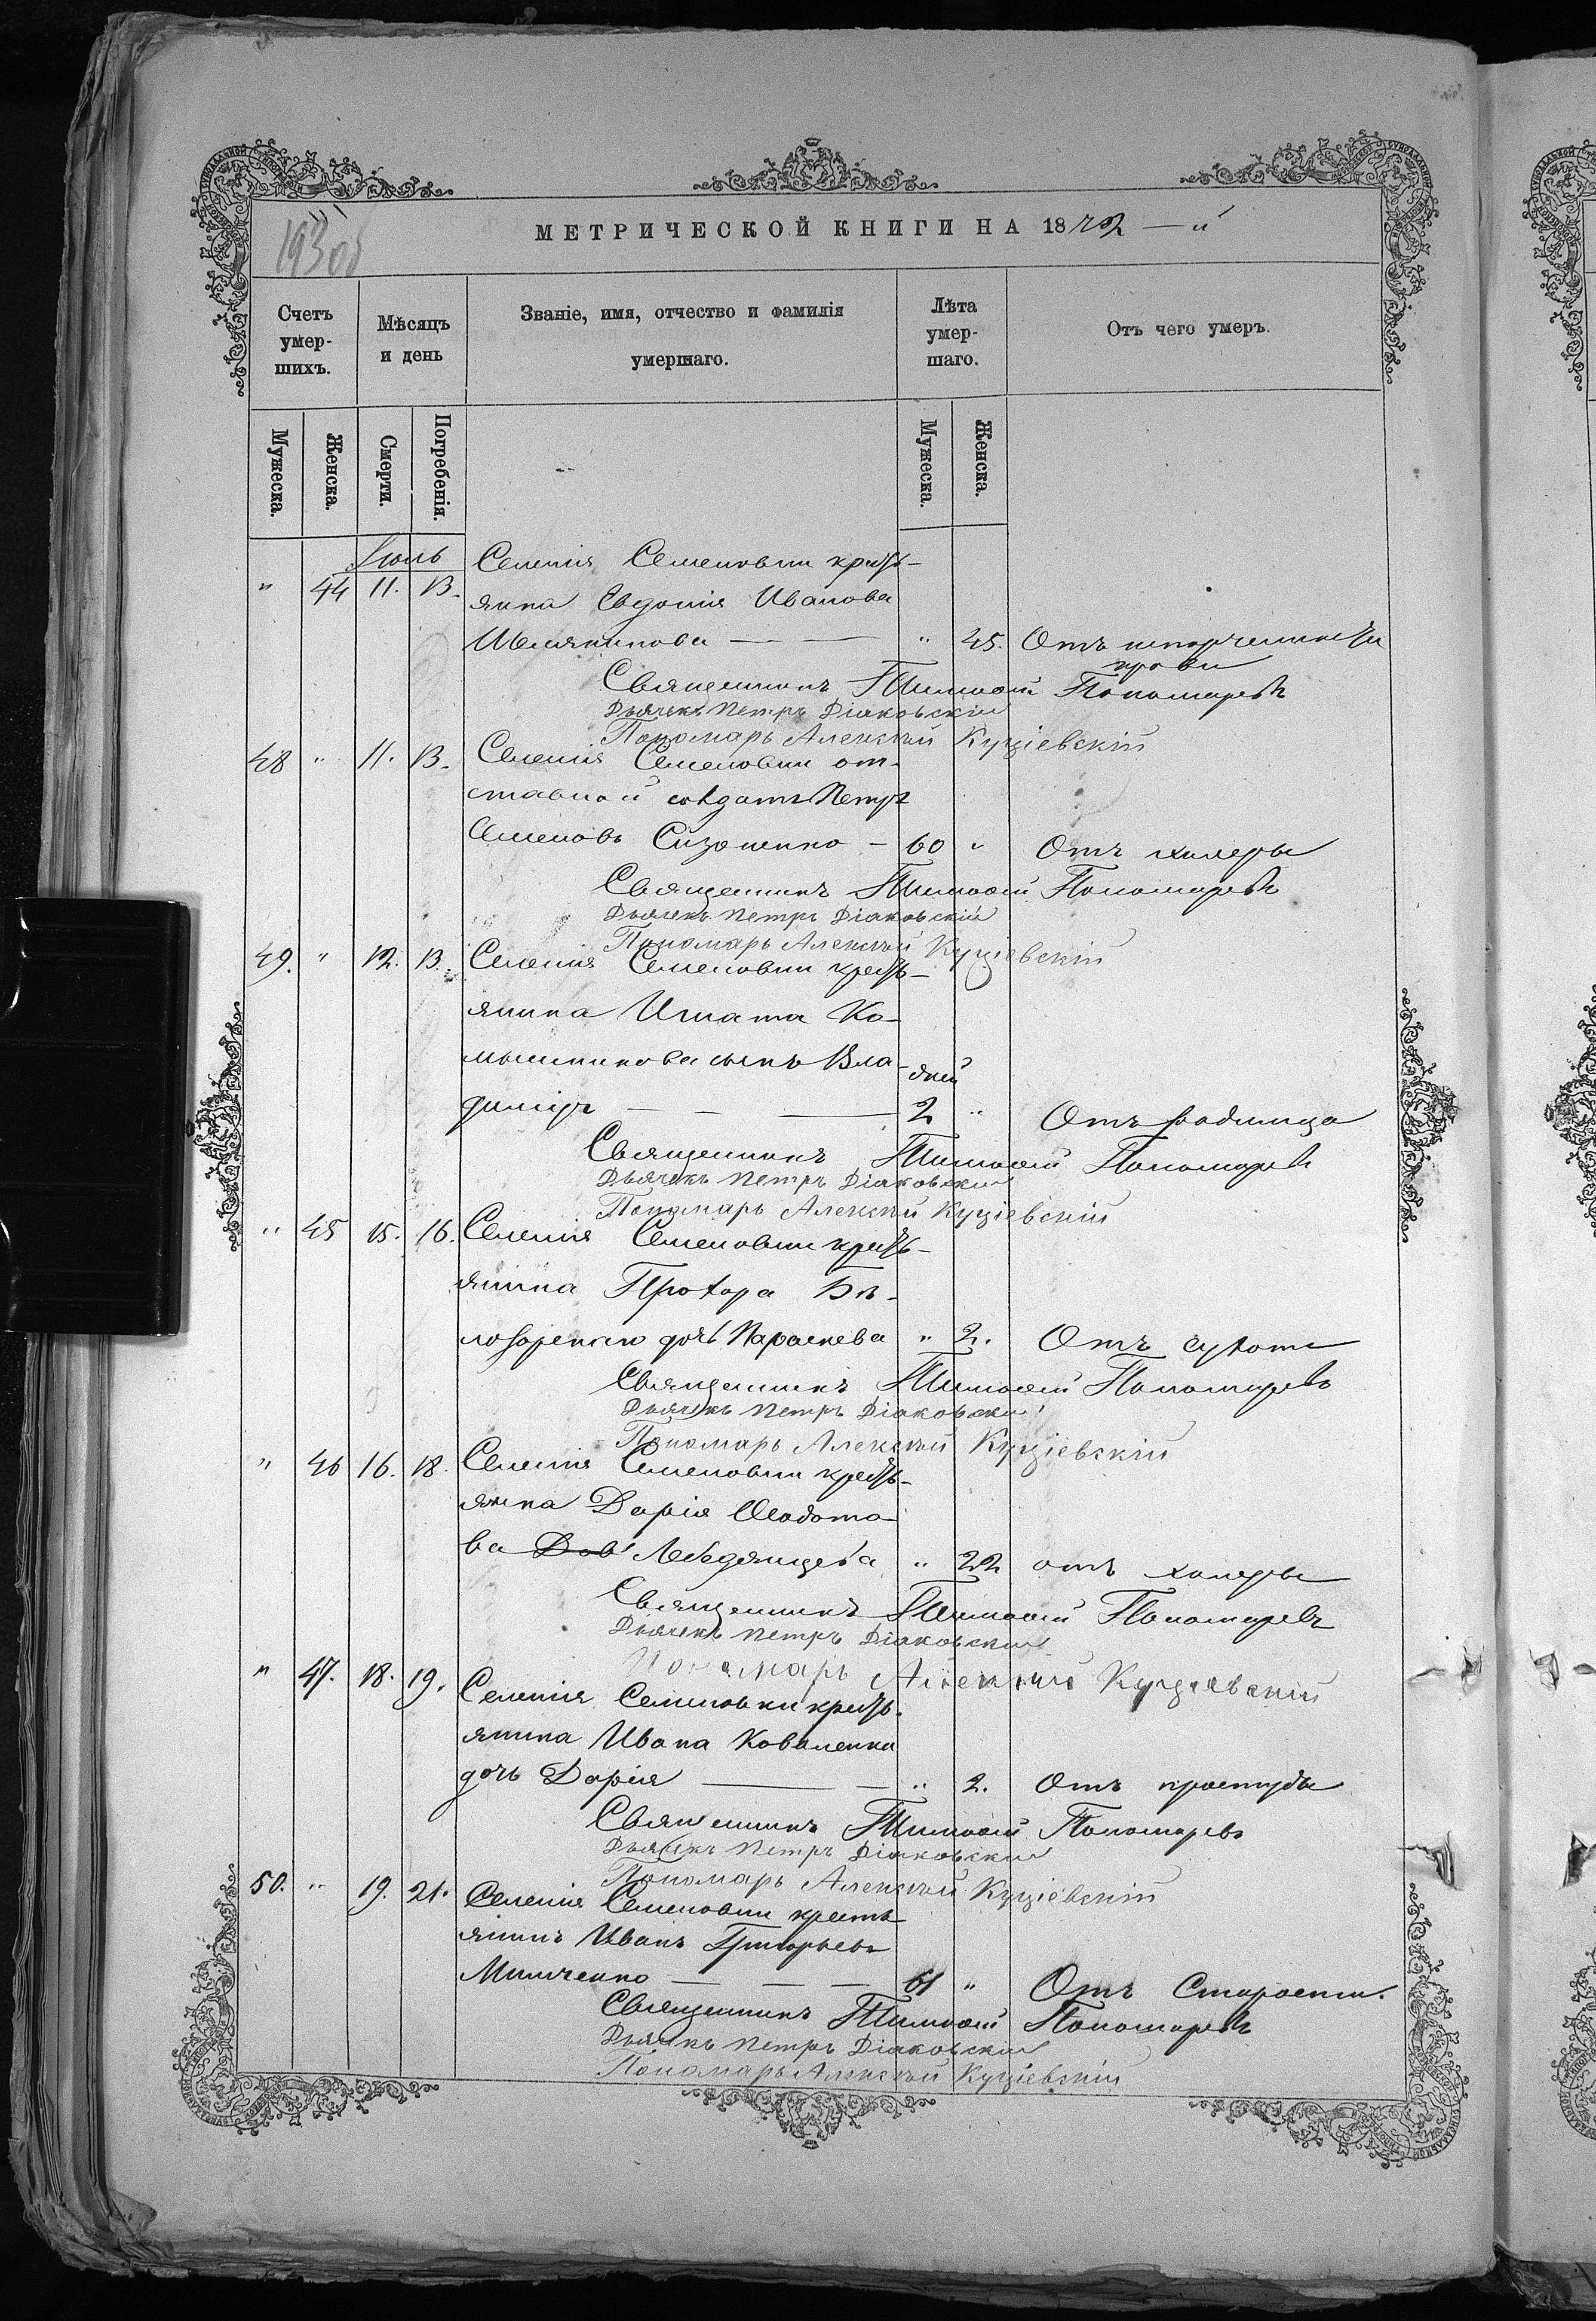 МЕТРИЧЕСКОЙ КНИГИ НА 1872 — й
Счетъ умер-шихъ.
Мѣсяцъ и день
Званіе, имя, отчество и фамилія умершаго.
Лѣта умер-шаго.
Отъ чего умеръ.
Мужеска. Женска. Смерти. Погребенія. Мужеска. Женска.
Іюль
" 44 11. 13. Селенія Семеновки кресть-
янка Евдокія Иванова
" 45. Отъ
крови
Священникъ Тимоѳей Пономаревъ
Дьячекъ Петръ Діаковскій
Пономарь Алексѣй
48 " 11. 13. Селенія Семеновки от-
ставной солдатъ Петръ
Семеновъ Сизоненко — 60 " Отъ холеры
Священникъ Тимоѳей Пономаревъ
Дьячекъ Петръ Діаковскій
Пономарь Алексѣй
49. " 12. 13. Селенія Семеновки кресть-
янина Игната Ко-
сынъ Вла- дней
диміръ — — — 2 " Отъ родимца
Священникъ Тимоѳей Пономаревъ
Дьячекъ Петръ Діаковскій
Пономарь Алексѣй
" 45 15. 16. Селенія Семеновки кресть-
янина Прохора Бѣ-
дочь Параскева " 2. Отъ сухоты
Священникъ Тимоѳей Пономаревъ
Дьячекъ Петръ Діаковскій
Пономарь Алексѣй
" 46 16. 18. Селенія Семеновки кресть-
янка Дарія Ѳеодото-
ва Лебединцева " 22 отъ холеры
Священникъ Тимоѳей Пономаревъ
Дьячекъ Петръ Діаковскій
Пономарь Алексѣй
" 47. 18. 19. Селенія Семеновки кресть-
янина Ивана Коваленка
дочь Дарія — — " 2. Отъ простуды
Священникъ Тимоѳей Пономаревъ
Дьячекъ Петръ Діаковскій
Пономарь Алексѣй
50. " 19. 21. Селенія Семеновки кресть-
янинъ Иванъ Григорьевъ
Минченко — — — 61 " Отъ Старости.
Священникъ Тимоѳей Пономаревъ
Дьячекъ Петръ Діаковскій
Пономарь Алексѣй